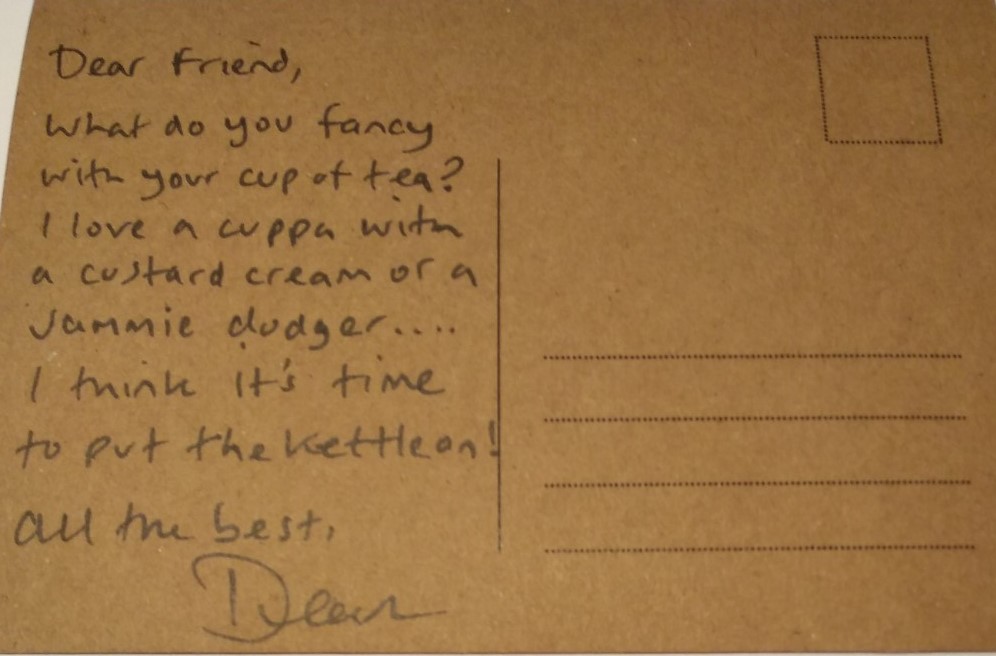 Dear Friend,
What do you fancy
with your cup of tea?
I love a cuppa with
a custard cream or a
Jammie dodger....
I think it's time
to put the kettle on!
all the best,